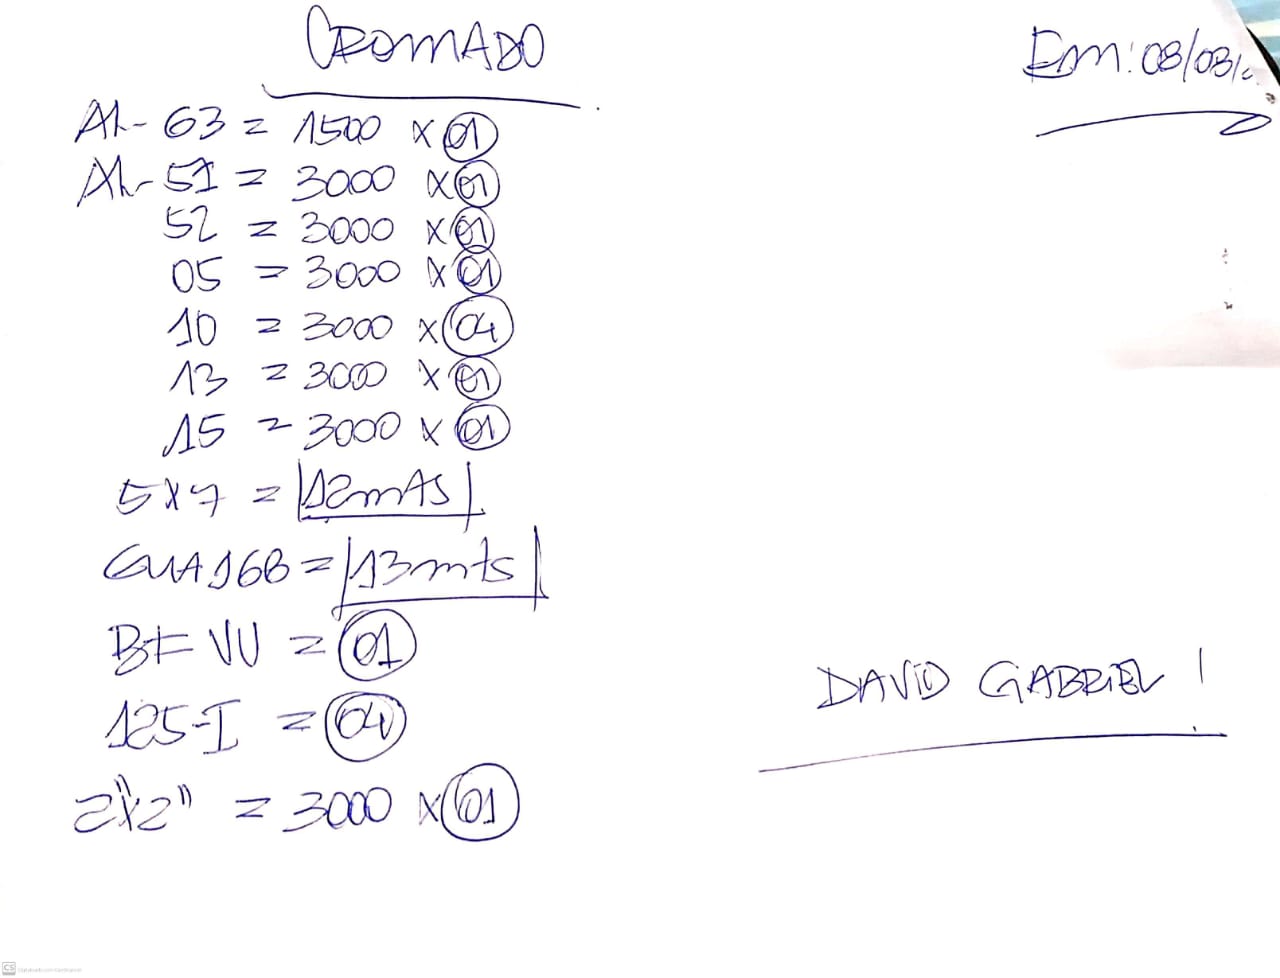 CROMADO
Em: 08/03/
AL-63 = 1500 x 01
AL-51 = 3000 x 01
52 = 3000 x 01
05 = 3000 x 01
10 = 3000 x 04
13 = 3000 x 01
15 = 3000 x 01
5x7 = 12mts
GUA168 = 13mts
BF VU = 01
DAVID GABRIEL !
125-I = 04
2"x2" = 3000 x 01
CS